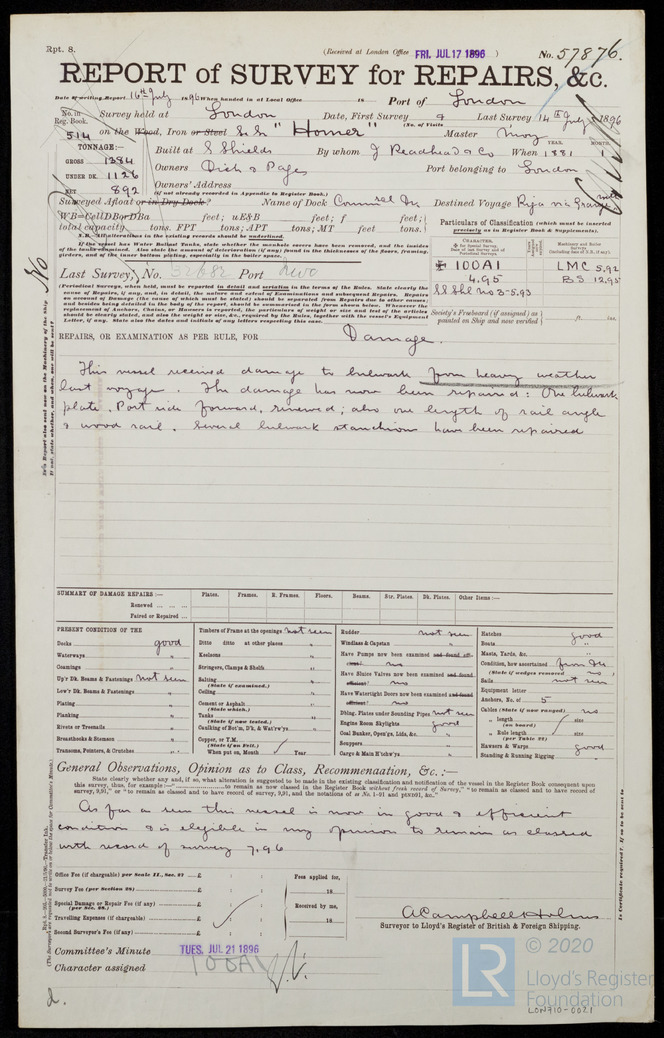 Rpt. 8.
(Received at London Office FRI. JUL 17 1896 )
No. 57876.
REPORT of SURVEY for REPAIRS, &c.
Date of writing Report 16th July 1896 When handed in at Local Office 18 Port of London
No. in Reg. Book. Survey held at London Date, First Survey Last Survey 14th July 1896
(No. of Visits
514 on the Wood, Iron or Steel S.S. "Homer" Master
TONNAGE:—
GROSS 1284
UNDER DK. 1126
NET 892
Built at S Shields By whom J Readhead & Co When 1881
YEAR. MONTH.
Owners Dick & Page Port belonging to London
Owners' Address
(if not already recorded in Appendix to Register Book.)
Surveyed Afloat or in Dry Dock? Name of Dock Destined Voyage
WB=CellDBorDBa feet; uE&B feet; f feet;
total capacity tons. FPT tons; APT tons; MT feet tons.
N.B.—All alterations in the existing records should be underlined.
If the vessel has Water Ballast Tanks, state whether the manhole covers have been removed, and the insides
Particulars of Classification (which must be inserted
precisely as in Register Book & Supplements).
100A1
4.95
SS Shl No 3-5.93
LMC 5.92
BS 12.95
Last Survey, No. 32682 Port Nwo
(Periodical Surveys, when held, must be reported in detail and seriatim in the terms of the Rules. State clearly the
cause of Repairs, if any, and, in detail, the nature and extent of Examinations and subsequent Repairs. Repairs
on account of Damage (the cause of which must be stated) should be separated from Repairs due to other causes;
and besides being detailed in the body of the report, should be summarized in the form shown below. Whenever the
replacement of Anchors, Chains, or Hawsers is reported, the particulars of weight or size and test of the articles
Letter, if any. State also the dates and initials of any letters respecting this case.
Society's Freeboard (if assigned) as
painted on Ship and now verified ft. ins.
REPAIRS, OR EXAMINATION AS PER RULE, FOR Damage.
This vessel received damage to bulwark from heavy weather
last voyage. The damage has now been repaired: One bulwark
plate, Port side forward, renewed; also one length of rail angle
& wood rail. Several bulwark stanchions have been repaired
SUMMARY OF DAMAGE REPAIRS:— Plates. Frames. R. Frames. Floors. Beams. Str. Plates. Dk. Plates. Other Items:—
Renewed ... ... ...
Faired or Repaired ...
PRESENT CONDITION OF THE
Decks good
Waterways "
Coamings "
Up'r Dk. Beams & Fastenings not seen
Low'r Dk. Beams & Fastenings "
Plating "
Planking "
Rivets or Treenails "
Breasthooks & Stemson "
Transoms, Pointers, & Crutches "
Timbers of Frame at the openings not seen
Ditto ditto at other places "
Keelsons "
Stringers, Clamps & Shelfs "
Salting "
(State if examined.)
Ceiling "
Cement or Asphalt "
(State which.)
Tanks "
(State if now tested.)
Caulking of Bot'm, D'k, & Wat'rw'ys
Copper, or Y.M.
(State if on Felt.)
When put on, Month Year
Rudder not seen
Windlass & Capstan "
Have Pumps now been examined and found efficient? no
Have Sluice Valves now been examined and found efficient? no
Have Watertight Doors now been examined and found efficient? no
Dblng. Plates under Sounding Pipes not seen
Engine Room Skylights good
Coal Bunker, Open'gs, Lids, &c. "
Scuppers "
Cargo & Main H'tchw'ys "
Hatches good
Boats "
Masts, Yards, &c. "
Condition, how ascertained from Dk
(State if wedges removed no)
Sails not seen
Equipment letter
Anchors, No. of 5
Cables (State if now ranged) no
" length size
(on board)
" Rule length size
(per Table 22)
Hawsers & Warps good
Standing & Running Rigging "
General Observations, Opinion as to Class, Recommendation, &c. :—
State clearly whether any, and if so, what alteration is suggested to be made in the existing classification and notification of the vessel in the Register Book consequent upon
this survey, thus, for example:—" to remain as now classed in the Register Book without fresh record of Survey," "to remain as classed and to have record of
survey, 9,91," or "to remain as classed and to have record of survey, 9,91, and the notations of
As far as seen this vessel is now in good & efficient
condition & is eligible in my opinion to remain as classed
with record of survey 7,96
Office Fee (if chargeable) per Scale II., Sec. 27 £ : :
Survey Fee (per Section 28) £ : :
Special Damage or Repair Fee (if any) £ : :
(per Sec. 28.)
Travelling Expenses (if chargeable) £ : :
Second Surveyor's Fee (if any) £ : :
Fees applied for,
18
Received by me,
18
A Campbell Holms
Surveyor to Lloyd's Register of British & Foreign Shipping.
Committee's Minute TUES. JUL 21 1896
Character assigned 100A1
© 2020
LR
Lloyd's Register
Foundation
LON710-0021